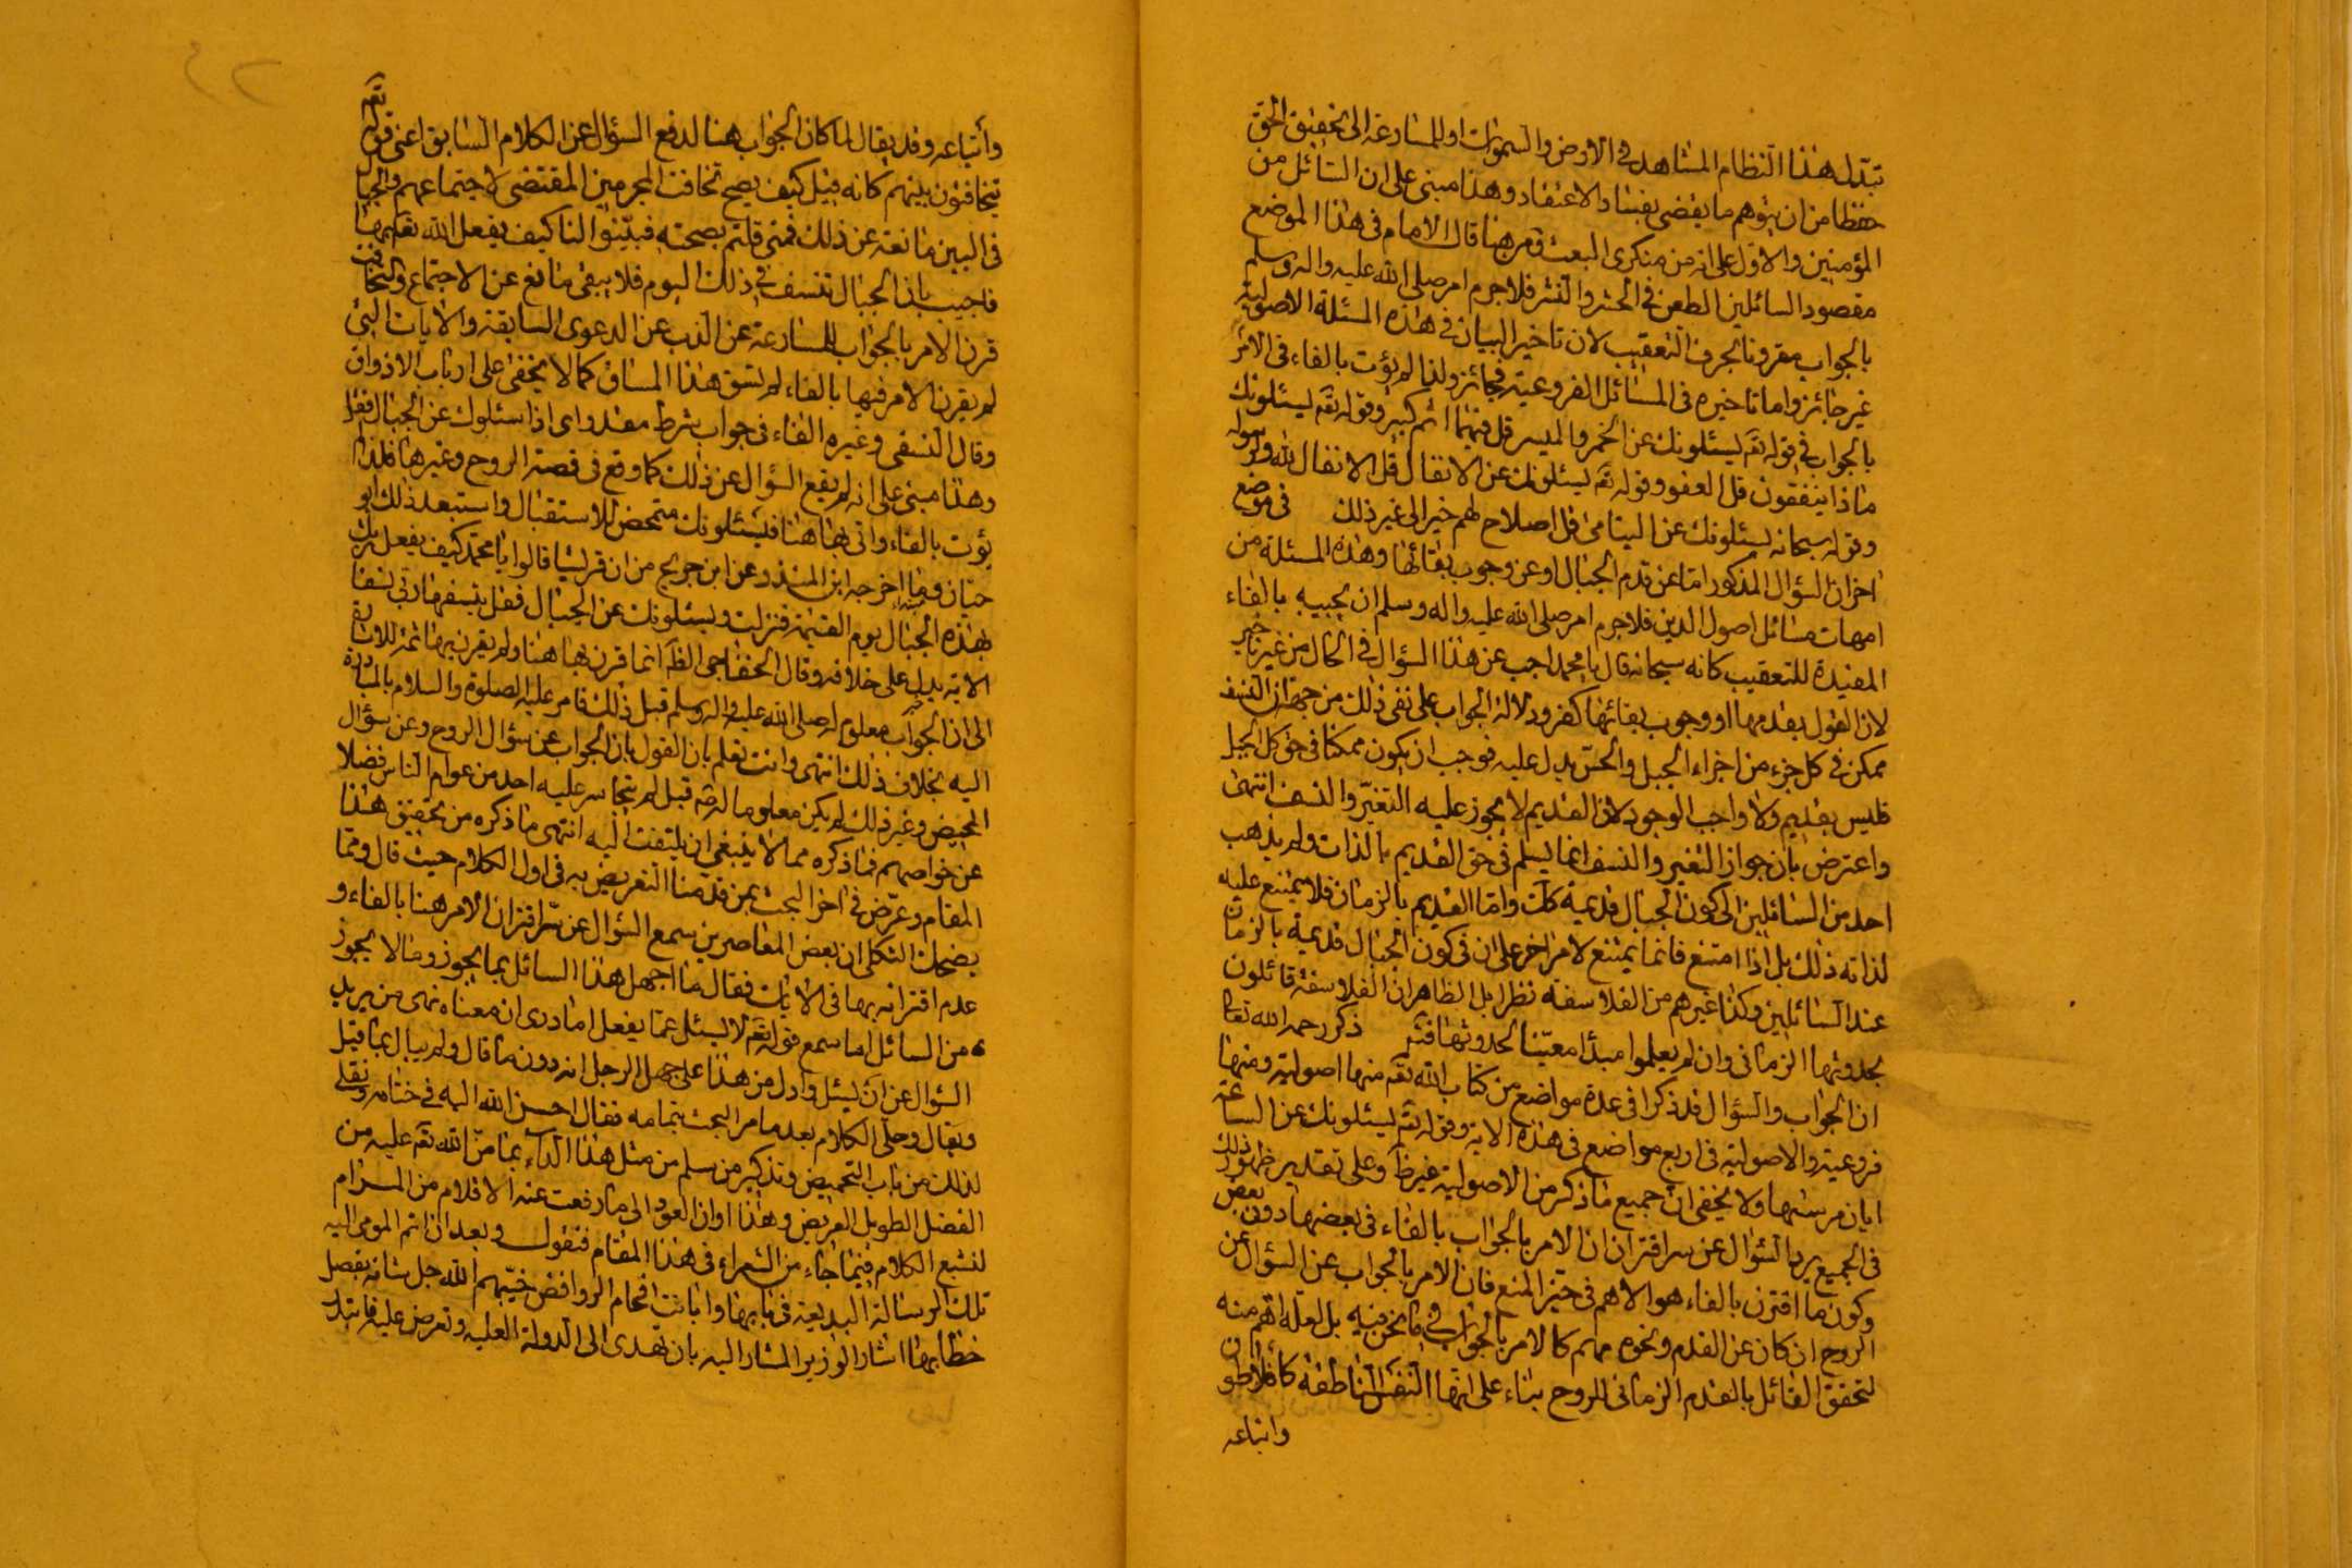 تبدل هذا النظام المشاهد في الارض والسموات او للمسارعة الى تحقيق الحق
حفظا من ان يتوهم ما يفضى بفساد الاعتقاد وهذا مبنى على ان السائل من
المؤمنين والاول على انه من منكرى البعث ومن هنا قال الامام فى هذا الموضع
مقصود السائلين الطعن في الحشر والنشر فلاجرم امر صلى الله عليه واله وسلم
بالجواب مقرونا بحرف التعقيب لان تاخير البيان فى هذه المسئلة الاصولية
غير جائز واما تاخيره فى المسائل الفروعية فجائز ولذا لم يؤت بالفاء فى الامر
بالجواب في قوله تعم يسئلونك عن الخمر والميسر قل فيهما اثم كبير وقوله تعم يسئلونك
ماذا ينفقون قل العفو وقوله تعم يسئلونك عن الانفال قل الانفال لله والرسوله
وقوله سبحانه يسئلونك عن اليتامى قل اصلاح لهم خير الى غير ذلك في موضع
اخر ان السؤال المذكور اما عن قدم الجبال او عن وجوب بقائها وهذه المسئلة من
امهات مسائل اصول الدين فلاجرم امر صلى الله عليه واله وسلم ان يجيبه بالفاء
المفيدة للتعقيب كانه سبحانه قال يا محمد اجب عن هذا السؤال في الحال من غير تاخير
لان القول بقدمها او وجوب بقائها كفر ودلالة الجواب على نفى ذلك من جهة ان النسف
ممكن في كل جزء من اجزاء الجبل والحس يدل عليه فوجب ان يكون ممكنا فى حق كل الجبل
فليس بقديم ولا واجب الوجود لان القديم لا يجوز عليه التغير والنسف انتهى
واعترض بان جواز التغير والنسف انما يسلم في حق القديم بالذات ولم يذهب
احد من السائلين الى كون الجبال قديمة كك واما القديم بالزمان فلا يمتنع عليه
لذاته ذلك بل اذا امتنع فانما يمتنع لامر اخر على ان فى كون الجبال قديمة بالزمان
عند السائلين وكذا غيرهم من الفلاسفة نظرا بل الظاهر ان الفلاسفة قائلون
بحدوثها الزمانى وان لم يعلموا مبدأ معينا لحدوثها فتم ذكر رحمه الله تعالى
ان الجواب والسؤال قد ذكرا فى عدة مواضع من كتاب الله تعم منها اصولية ومنها
فروعية والاصولية فى اربع مواضع فى هذه الاية وقوله تعم يسئلونك عن الساعة
ايان مرسيها ولا يخفى ان جميع ما ذكر من الاصولية غير ظ وعلى تقدير ظهور ذلك
فى الجميع يرد السؤال عن سر اقتران الامر بالجواب بالفاء فى بعضها دون بعض
وكون ما اقترن بالفاء هو الاهم فى حيز المنع فان الامر بالجواب عن السؤال عن
الروح ان كان عن القدم ونحوه مهم كالامر بالجواب في ما نحن فيه بل لعله اهم منه
لتحقق القائل بالقدم الزمانى للروح بناء على انها النفس الناطقة كافلاطون
واتباعه
وأتباعه وقد يقال لما كان الجواب هنا لدفع السؤال عن الكلام السابق اعنى قوله تعم
يتخافتون بينهم كانه قيل كيف يصح تخافت المجرمين المقتضى لاجتماعهم والجبال
فى البين مانعة عن ذلك فمتى قلتم بصحته فبينوا لنا كيف يفعل الله تعم بها
فاجيب بان الجبال تنسف في ذلك اليوم فلا يبقى مانع عن الاجتماع والتخافت
قرن الامر بالجواب للمسارعة عن الذب عن الدعوى السابقة والآيات التى
لم يقرن الامر فيها بالفاء لم تسق هذا المساق كما لا يخفى على ارباب الاذواق
وقال النسفى وغيره الفاء فى جواب شرط مقدر اى اذا سئلوك عن الجبال فقل
وهذا مبنى على انه لم يقع السؤال عن ذلك كما وقع فى قصة الروح وغيرها فلذا لم
يؤت بالفاء واتى بها هنا فيسئلونك متمحض للاستقبال واستبعد ذلك ابو
حيان وما اخرجه ابن المنذر عن ابن جريج من ان قريشا قالوا يا محمد كيف يفعل ربك
بهذه الجبال يوم القيمة فنزلت ويسئلونك عن الجبال فقل ينسفها ربى نسفا
الاية يدل على خلافه وقال الخفاجى الظ انما قرن بها هنا ولم يقرن بها ثمة للاشارة
الى ان الجواب معلوم له صلى الله عليه واله وسلم قبل ذلك فامر عليه الصلوة والسلام بالمبادرة
اليه بخلاف ذلك انتهى وانت تعلم بان القول بان الجواب عن سؤال الروح وعن سؤال
المحيض وغير ذلك لم يكن معلوما له قبل لم يتجاسر عليه احد من عوام الناس فضلا
عن خواصهم فما ذكره مما لا ينبغى ان يلتفت اليه انتهى ما ذكره من تحقيق هذا
المقام وعرض في اخر البحث بمن قدمنا التعريض به فى اول الكلام حيث قال ومما
يضحك الثكلى ان بعض المعاصرين سمع السؤال عن سر اقتران الامر هنا بالفاء و
عدم اقترانه بها فى الايات فقال ما اجهل هذا السائل بما يجوز وما لا يجوز
من السائل اما سمع قوله تعم لا يسئل عما يفعل اما درى ان معناه نهى من يريد
السؤال عن ان يسئل وادل من هذا على جهل الرجل انه دون ما قال ولم يبال بما قيل
ويقال وحلى الكلام بعد ما مر البحث بتمامه فقال احسن الله اليه في ختامه ونقلى
لذلك من باب التحميض وتذكير من سلم من مثل هذا الداء بما من الله تعم عليه من
الفضل الطويل العريض وهذا اوان العود الى ما رفعت عنه الاقلام من المرام
لنتبع الكلام فيما جاء من الشعراء فى هذا المقام فنقول وبعد ان اتم المومى اليه
تلك الرسالة البديعة فى بابها وابانت افحام الروافض خيبهم الله جل شانه بفصل
خطابها اشار الوزير المشار اليه بان تهدى الى الدولة العلية وتعرض عليه